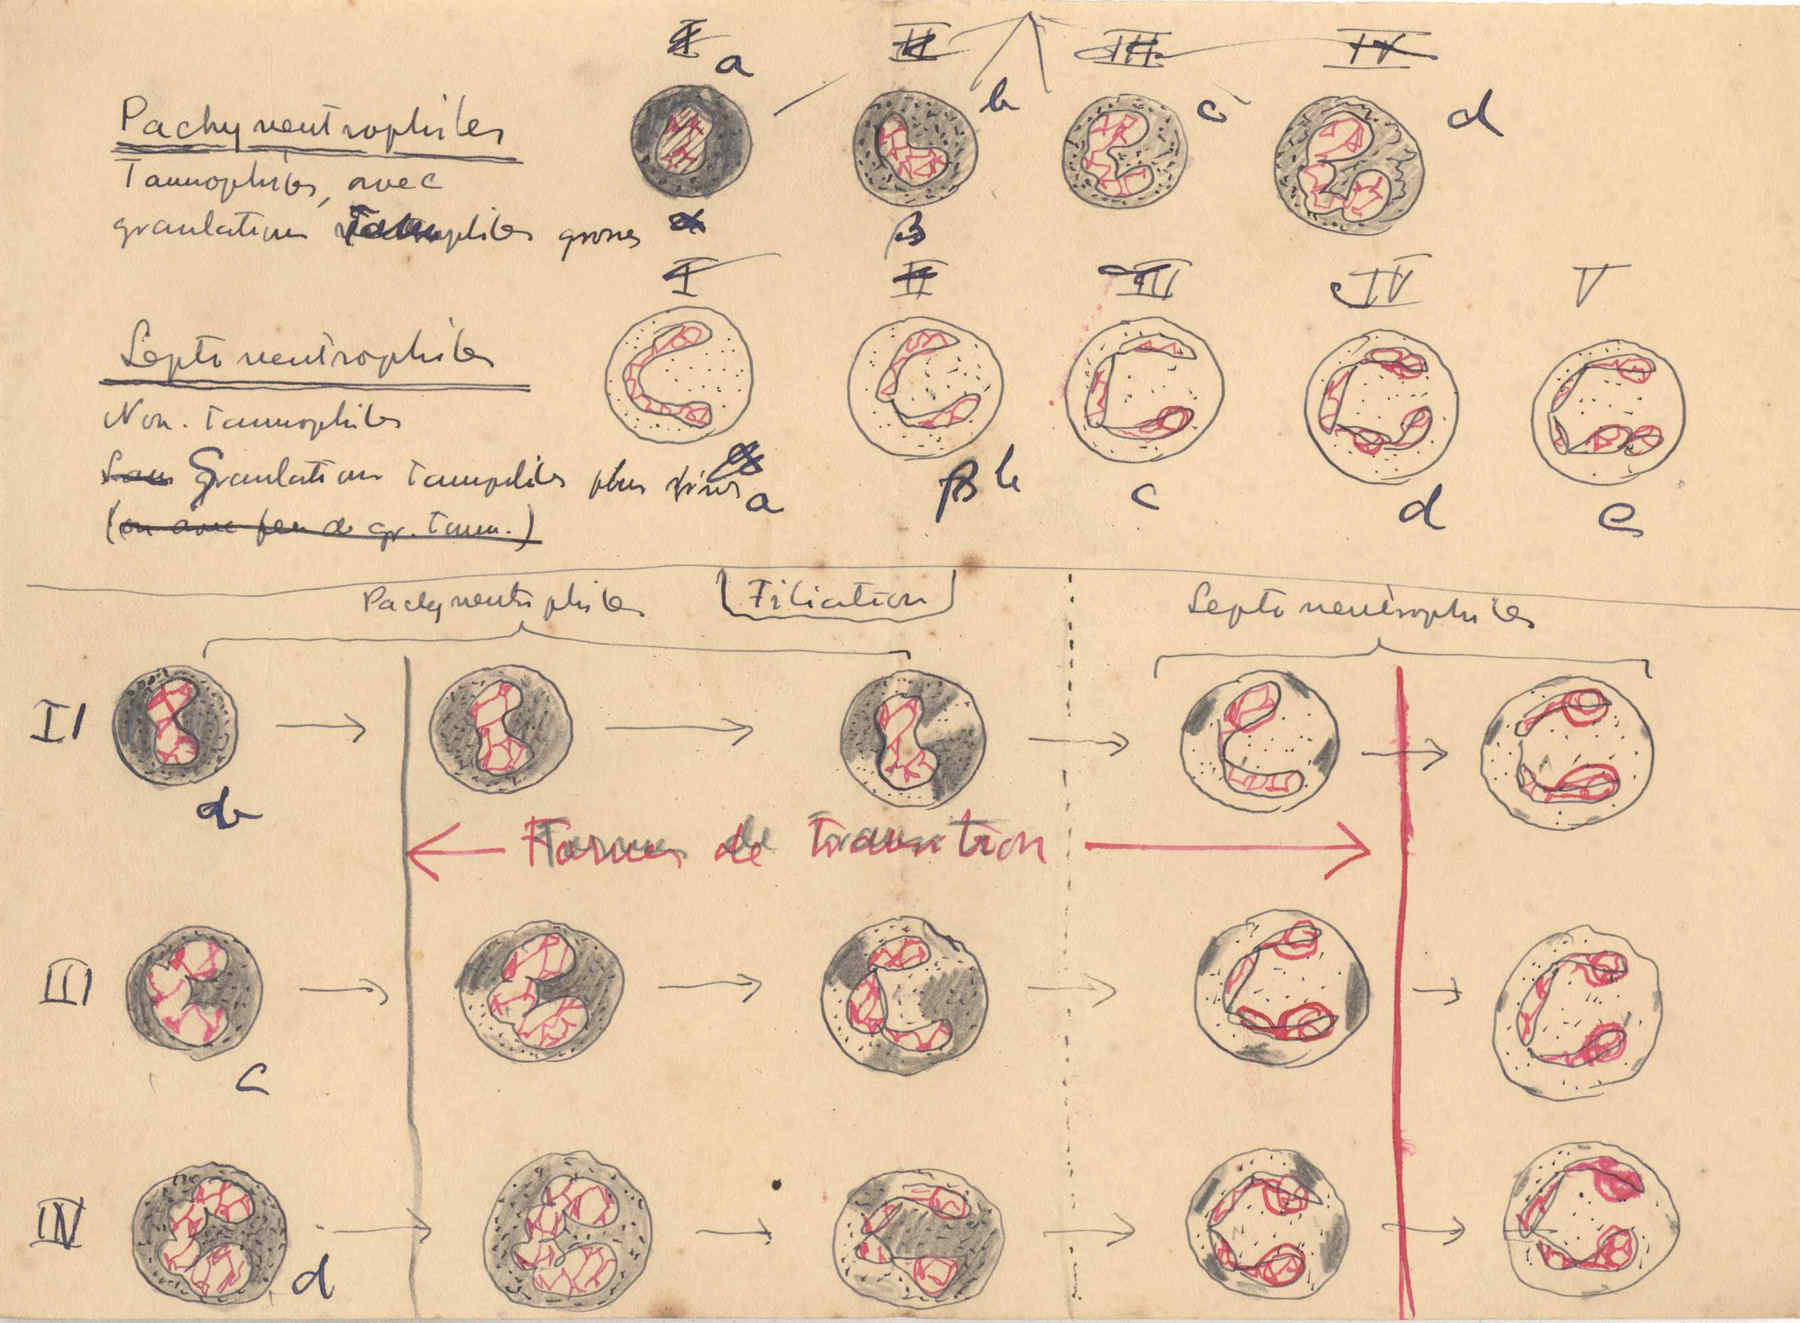 I II III IV
a b c d
Pachyneutrophiles
Tannophiles, avec
granulations grosses
α β
I II III IV V
Leptoneutrophiles
Non-Tannophiles
Granulations tannophiles plus fines
(ou avec peu de gr. tann.)
a β b c d e
Pachyneutrophiles Filiation Leptoneutrophiles
II
b
Formes de transition
III
c
IV
d